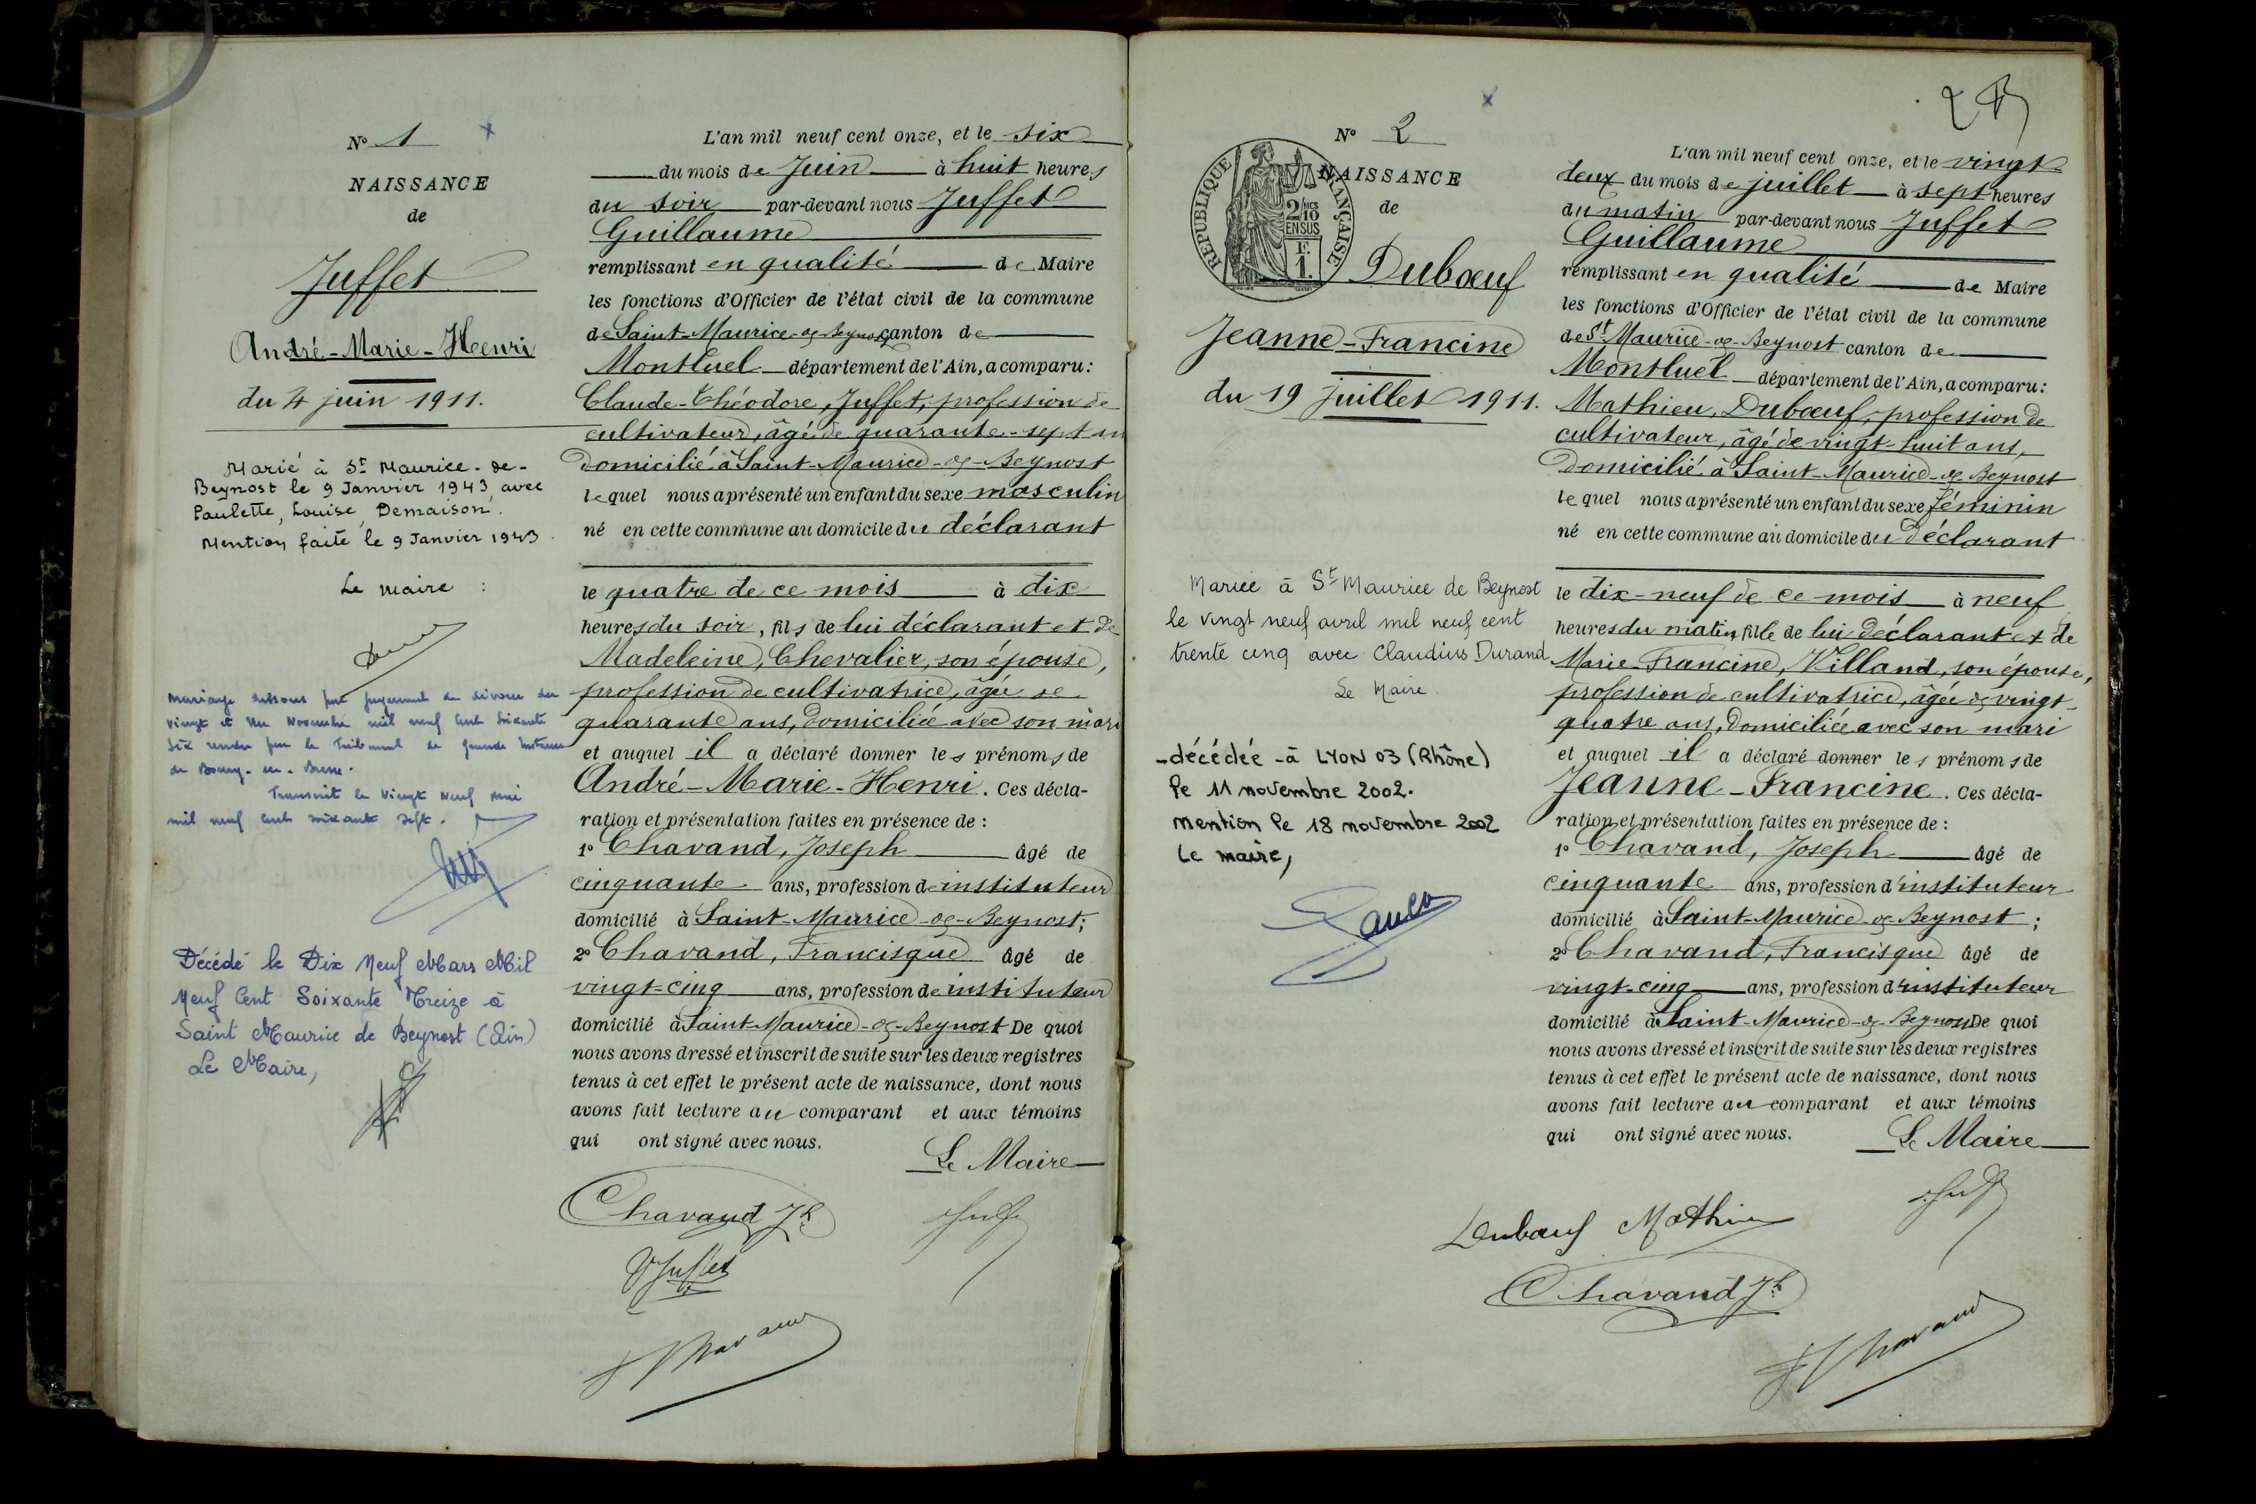 N° 1
NAISSANCE
de
Juffet
André-Marie-Henri
du 4 juin 1911.
Marié à St Maurice-de-
Beynost le 9 Janvier 1943 avec
Paulette, Louise Demaison.
Mention faite le 9 Janvier 1943.
Le maire :
Mariage dissous par jugement de divorce du
vingt et un Novembre mil neuf cent soixante
six rendu par le Tribunal de grande Instance
de Bourg-en-Bresse.
Transcrit le vingt neuf mai
mil neuf cent soixante sept.
Décédé le Dix Neuf Mars Mil
Neuf Cent Soixante Treize à
Saint Maurice de Beynost (Ain)
Le Maire,
L'an mil neuf cent onze, et le six
du mois de Juin à huit heures
du soir par-devant nous Juffet
Guillaume
remplissant en qualité de Maire
les fonctions d'Officier de l'état civil de la commune
de Saint-Maurice-de-Beynost canton de
Montluel département de l'Ain, a comparu:
Claude-Théodore, Juffet, profession de
cultivateur, âgé de quarante-sept an
domicilié à Saint-Maurice-de-Beynost
lequel nous a présenté un enfant du sexe masculin
né en cette commune au domicile du déclarant
le quatre de ce mois à dix
heures du soir, fils de lui déclarant et de
Madeleine, Chevalier, son épouse,
profession de cultivatrice, âgée de
quarante ans, domiciliée avec son mari
et auquel il a déclaré donner les prénoms de
André-Marie-Henri. Ces décla-
ration et présentation faites en présence de :
1° Chavand, Joseph âgé de
cinquante ans, profession de instituteur
domicilié à Saint-Maurice-de-Beynost;
2° Chavand, Francisque âgé de
vingt-cinq ans, profession de instituteur
domicilié à Saint-Maurice-de-Beynost De quoi
nous avons dressé et inscrit de suite sur les deux registres
tenus à cet effet le présent acte de naissance, dont nous
avons fait lecture au comparant et aux témoins
qui ont signé avec nous.
Le Maire
Chavand Jh
Juffet
Chavand
N° 2
NAISSANCE
de
RÉPUBLIQUE FRANÇAISE
2/10
EN SUS
F.
1.
Dubœuf
Jeanne-Francine
du 19 juillet 1911.
Mariée à St Maurice de Beynost
le vingt neuf avril mil neuf cent
trente cinq avec Claudius Durand
Le Maire
-décédée -à LYON 03 (Rhône)
le 11 novembre 2002.
Mention le 18 novembre 2002
Le maire,
L'an mil neuf cent onze, et le vingt
deux du mois de juillet à sept heures
du matin par-devant nous Juffet
Guillaume
remplissant en qualité de Maire
les fonctions d'Officier de l'état civil de la commune
de St Maurice-de-Beynost canton de
Montluel département de l'Ain, a comparu:
Mathieu, Dubœuf, profession de
cultivateur, âgé de vingt-huit ans,
domicilié à Saint-Maurice-de-Beynost
lequel nous a présenté un enfant du sexe féminin
né en cette commune au domicile du déclarant
le dix-neuf de ce mois à neuf
heures du matin, fille de lui déclarant et de
Marie-Francine, Villand, son épouse,
profession de cultivatrice, âgée de vingt-
quatre ans, domiciliée avec son mari
et auquel il a déclaré donner les prénoms de
Jeanne-Francine. Ces décla-
ration et présentation faites en présence de :
1° Chavand, Joseph âgé de
cinquante ans, profession d'instituteur
domicilié à Saint-Maurice-de-Beynost ;
2° Chavand, Francisque âgé de
vingt-cinq ans, profession d'instituteur
domicilié à Saint-Maurice-de-Beynost De quoi
nous avons dressé et inscrit de suite sur les deux registres
tenus à cet effet le présent acte de naissance, dont nous
avons fait lecture au comparant et aux témoins
qui ont signé avec nous.
Le Maire
Dubœuf Mathieu
Chavand Jh
Chavand